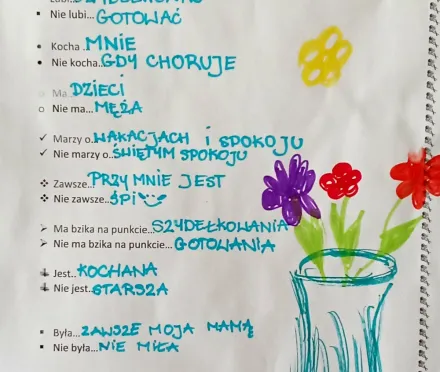 Nie lubi...GOTOWAĆ
Kocha..MNIE
Nie kocha..GDY CHORUJE
Ma...DZIECI
Nie ma...MĘŻA
Marzy o...WAKACJACH I SPOKOJU
Nie marzy o...ŚWIĘTYM SPOKOJU
Zawsze...PRZY MNIE JEST
Nie zawsze..ŚPI
Ma bzika na punkcie...SZYDEŁKOWANIA
Nie ma bzika na punkcie...GOTOWANIA
Jest..KOCHANA
Nie jest..STARSZA
Była...ZAWSZE MOJA MAMĄ
Nie była...NIE MIŁA